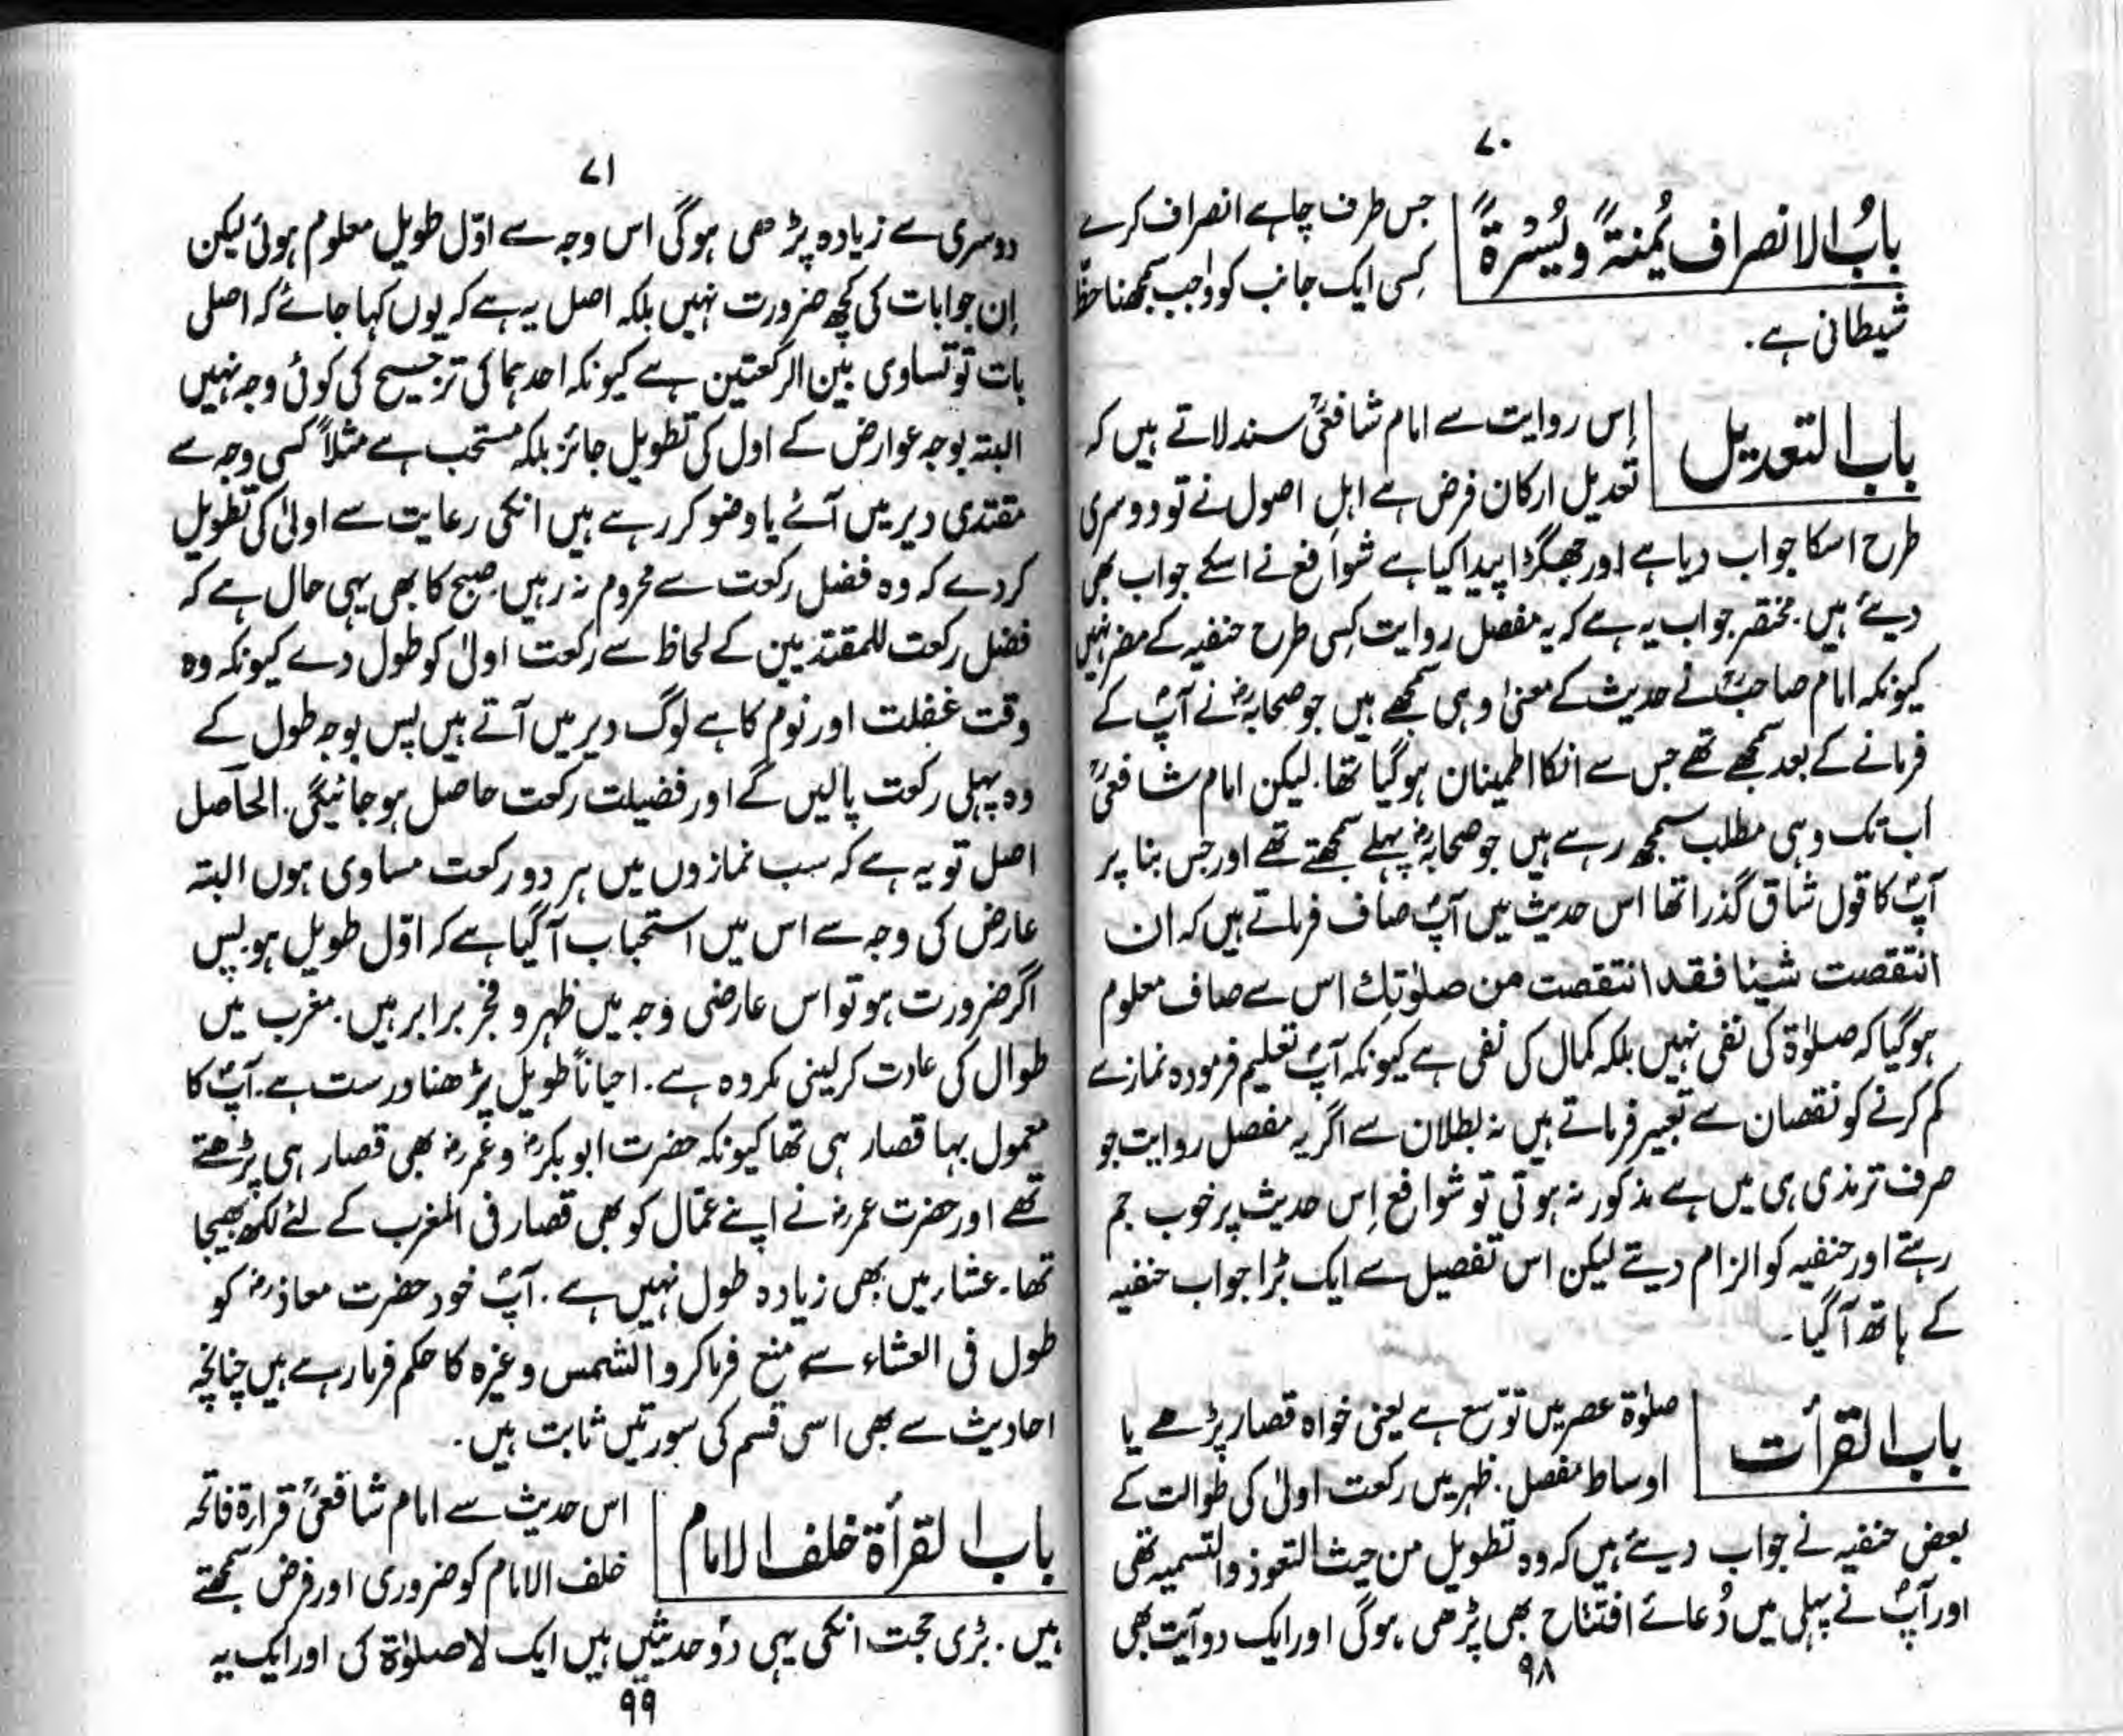 ۷۰
بابُ الانصراف یُمنۃً ویُسْرۃً
جس طرف چاہے انصراف کرے
کسِی ایک جانب کو واجب سمجھنا حظِّ
شیطانی ہے۔
باب التعدیل
اِس روایت سے امام شافعیؒ سند لاتے ہیں کہ
تعدیل ارکان فرض ہے اہلِ اصول نے تو دوسری
طرح اسکا جواب دیا ہے اور جھگڑا پیدا کیا ہے شوافع نے اسکے جواب بھی
دیئے ہیں۔ مختصر جواب یہ ہے کہ یہ مفصل روایت کِسی طرح حنفیہ کے مضر نہیں
کیونکہ امام صاحبؒ نے حدیث کے معنیٰ وہی سمجھے ہیں جو صحابہؓ نے آپؐ کے
فرمانے کے بعد سمجھے تھے جس سے انکا اطمینان ہوگیا تھا۔ لیکن امام شافعیؒ
اب تک وہی مطلب سمجھ رہے ہیں جو صحابہؓ پہلے سمجھتے تھے اور جس بنا پر
آپؐ کا قول شاق گذرا تھا اس حدیث میں آپؐ صاف فرماتے ہیں کہ ان
انتقصت شیئا فقد انتقصت من صلوٰتِك اس سے صاف معلوم
ہوگیا کہ صلوٰۃ کی نفی نہیں بلکہ کمال کی نفی ہے کیونکہ آپؐ تعلیم فرمودہ نماز سے
کم کرنے کو نقصان سے تعبیر فرماتے ہیں نہ بطلان سے اگر یہ مفصل روایت جو
صرف ترمذی ہی میں ہے مذکور نہ ہوتی تو شوافع اِس حدیث پر خوب جم
رہتے اور حنفیہ کو الزام دیتے لیکن اس تفصیل سے ایک بڑا جواب حنفیہ
کے ہاتھ آگیا۔
باب القرأت
صلوٰۃ عصر میں توسّع ہے یعنی خواہ قصار پڑھے یا
اوساط مفصل۔ ظہر میں رکعت اولیٰ کی طوالت کے
بعض حنفیہ نے جواب دیئے ہیں کہ وہ تطویل من حیث التعوذ والتسمیہ تھی
اور آپؐ نے پہلی میں دُعائے افتتاح بھی پڑھی ہوگی اور ایک دو آیت بھی
۹۸
۷۱
دوسری سے زیادہ پڑھی ہوگی اس وجہ سے اوّل طویل معلوم ہوئی لیکن
اِن جوابات کی کچھ ضرورت نہیں بلکہ اصل یہ ہے کہ یوں کہا جائے کہ اصلی
بات تو تساوی بین الرکعتین ہے کیونکہ احدہما کی ترجیح کی کوئی وجہ نہیں
البتہ بوجہ عوارض کے اول کی تطویل جائز بلکہ مستحب ہے مثلاً کسی وجہ سے
مقتدی دیر میں آئے یا وضو کر رہے ہیں انکی رعایت سے اولیٰ کی تطویل
کردے کہ وہ فضل رکعت سے محروم نہ رہیں صبح کا بھی یہی حال ہے کہ
فضل رکعت للمقتدیین کے لحاظ سے رکعت اولیٰ کو طول دے کیونکہ وہ
وقت غفلت اور نوم کا ہے لوگ دیر میں آتے ہیں پس بوجہ طول کے
وہ پہلی رکعت پالیں گے اور فضیلت رکعت حاصل ہوجائیگی۔ الحاصل
اصل تو یہ ہے کہ سب نمازوں میں ہر دو رکعت مساوی ہوں البتہ
عارض کی وجہ سے اس میں استحباب آگیا ہے کہ اوّل طویل ہو۔ پس
اگر ضرورت ہو تو اس عارضی وجہ میں ظہر و فجر برابر ہیں۔ مغرب میں
طوال کی عادت کرلینی مکروہ ہے۔ احیاناً طویل پڑھنا درست ہے۔ آپؐ کا
معمول بہا قصار ہی تھا کیونکہ حضرت ابوبکرؓ و عمرؓ بھی قصار ہی پڑھتے
تھے اور حضرت عمرؓ نے اپنے عمّال کو بھی قصار فی المغرب کے لئے لکھ بھیجا
تھا۔ عشاء میں بھی زیادہ طول نہیں ہے۔ آپؐ خود حضرت معاذؓ کو
طول فی العشاء سے منع فرماکر والشمس وغیرہ کا حکم فرمارہے ہیں چنانچہ
احادیث سے بھی اسی قسم کی سورتیں ثابت ہیں۔
باب القرأۃ خلف الامام
اس حدیث سے امام شافعیؒ قراءۃ فاتحہ
خلف الامام کو ضروری اور فرض سمجھتے
ہیں۔ بڑی حجت انکی یہی دو حدیثیں ہیں ایک لا صلوٰۃ کی اور ایک یہ
۹۹